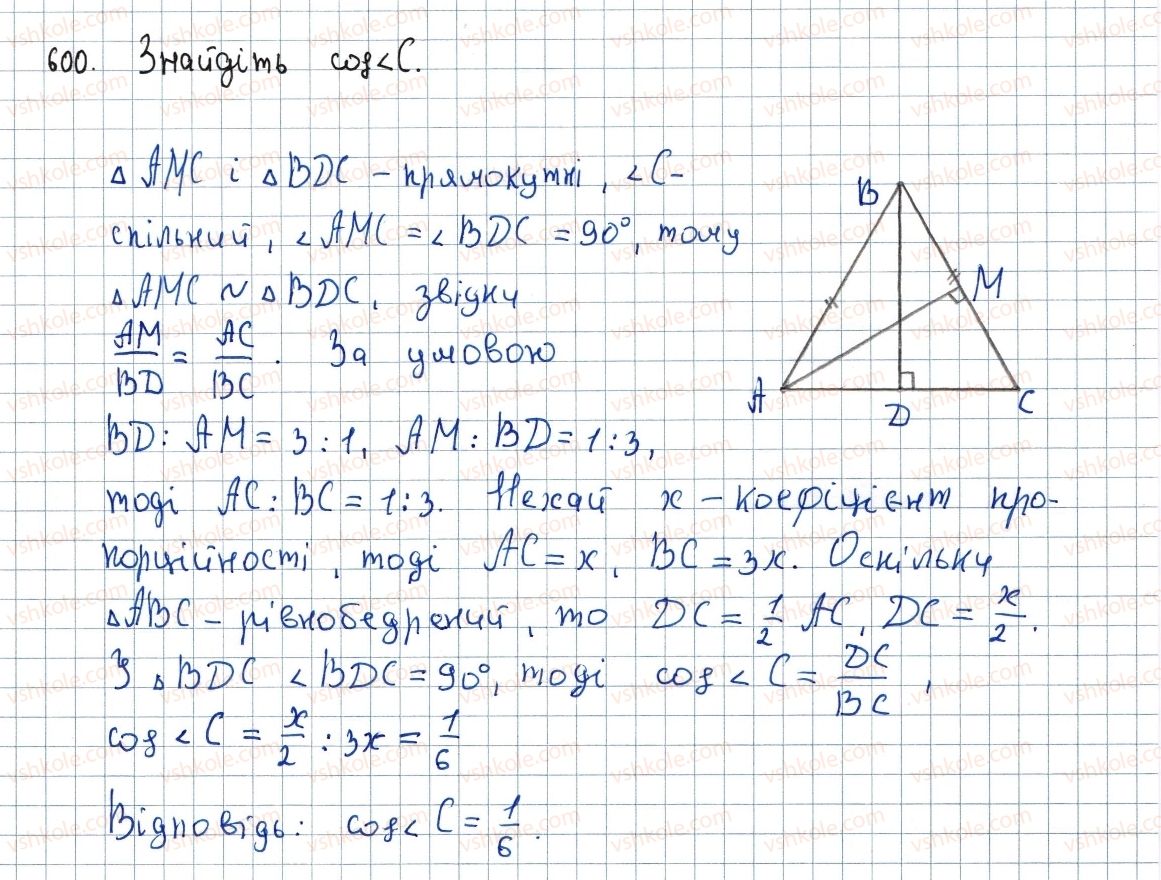 600. Знайдіть cos<C.
△AMC і △BDC – прямокутні, <C-
спільний, <AMC = <BDC = 90°, тому
△AMC ~ △BDC, звідки
AM/BD = AC/BC. За умовою
BD : AM = 3 : 1, AM : BD = 1 : 3,
тоді AC : BC = 1 : 3. Нехай x – коефіцієнт про-
порційності, тоді AC = x, BC = 3x. Оскільки
△ABC – рівнобедрений, то DC = 1/2 AC, DC = x/2.
З △BDC <BDC = 90°, тоді cos<C = DC/BC,
cos<C = x/2 : 3x = 1/6
Відповідь: cos<C = 1/6.
B
M
A
D
C
vshkole.com